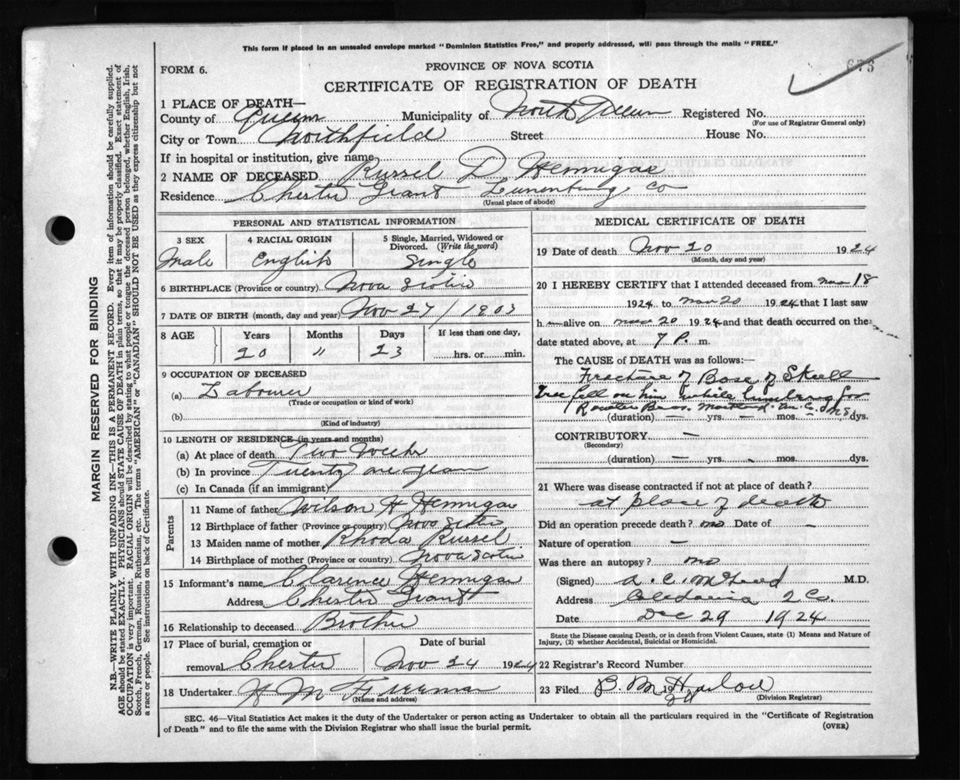 This form if placed in an unsealed envelope marked "Dominion Statistics Free," and properly addressed, will pass through the mails "FREE."
PROVINCE OF NOVA SCOTIA
FORM 6.
CERTIFICATE OF REGISTRATION OF DEATH
1 PLACE OF DEATH—
County of Queens Municipality of North Queens Registered No.
(For use of Registrar General only)
City or Town Northfield Street House No.
If in hospital or institution, give name
2 NAME OF DECEASED Russel D. Hennigar
Residence Chester Grant Lunenburg Co
(Usual place of abode)
PERSONAL AND STATISTICAL INFORMATION
3 SEX 4 RACIAL ORIGIN 5 Single, Married, Widowed or Divorced. (Write the word)
Male English Single
6 BIRTHPLACE (Province or country) Nova Scotia
7 DATE OF BIRTH (month, day and year) Nov 27/1903
8 AGE Years Months Days If less than one day,
20 " 23 hrs. or min.
9 OCCUPATION OF DECEASED
(a) Labourer
(Trade or occupation or kind of work)
(b)
(Kind of industry)
10 LENGTH OF RESIDENCE (in years and months)
(a) At place of death Two Weeks
(b) In province Twenty one years
(c) In Canada (if an immigrant)
Parents
11 Name of father Wilson H Hennigar
12 Birthplace of father (Province or country) Nova Scotia
13 Maiden name of mother Rhoda Russel
14 Birthplace of mother (Province or country) Nova Scotia
15 Informant's name Clarence Hennigar
Address Chester Grant
16 Relationship to deceased Brother
17 Place of burial, cremation or Date of burial
removal Chester Nov 24 1924
18 Undertaker H M Freeman
(Name and address)
MEDICAL CERTIFICATE OF DEATH
19 Date of death Nov 20 1924
(Month, day and year)
20 I HEREBY CERTIFY that I attended deceased from Nov 18
1924 to Nov 20 1924 that I last saw
h alive on Nov 20 1924 and that death occurred on the
date stated above, at 7 P. m.
The CAUSE of DEATH was as follows:—
Fracture of Base of Skull
Tree fell on him while lumbering for
Bros.
(duration) yrs. mos. dys.
CONTRIBUTORY —
(Secondary)
(duration) — yrs. — mos. dys.
21 Where was disease contracted if not at place of death?
at place of death
Did an operation precede death? no Date of —
Nature of operation —
Was there an autopsy? no
(Signed) A. C. McLeod M.D.
Address Caledonia Q Co.
Date Dec 29 1924
State the Disease causing Death, or in death from Violent Causes, state (1) Means and Nature of Injury, (2) whether Accidental, Suicidal or Homicidal.
22 Registrar's Record Number
23 Filed B. M. Harlow
(Division Registrar)
SEC. 46—Vital Statistics Act makes it the duty of the Undertaker or person acting as Undertaker to obtain all the particulars required in the "Certificate of Registration
of Death" and to file the same with the Division Registrar who shall issue the burial permit.
(OVER)
MARGIN RESERVED FOR BINDING
N.B.—WRITE PLAINLY WITH UNFADING INK—THIS IS A PERMANENT RECORD. Every item of information should be carefully supplied.
AGE should be stated EXACTLY. PHYSICIANS should STATE CAUSE OF DEATH in plain terms, so that it may be properly classified. Exact statement of
OCCUPATION is very important. RACIAL ORIGIN will be described by stating to what people or tongue the deceased person belonged, whether English, Irish,
Scotch, French, German, Russian, Ruthenian, etc. The terms "AMERICAN" or "CANADIAN" SHOULD NOT BE USED as they express citizenship but not
a race or people. See instructions on back of Certificate.